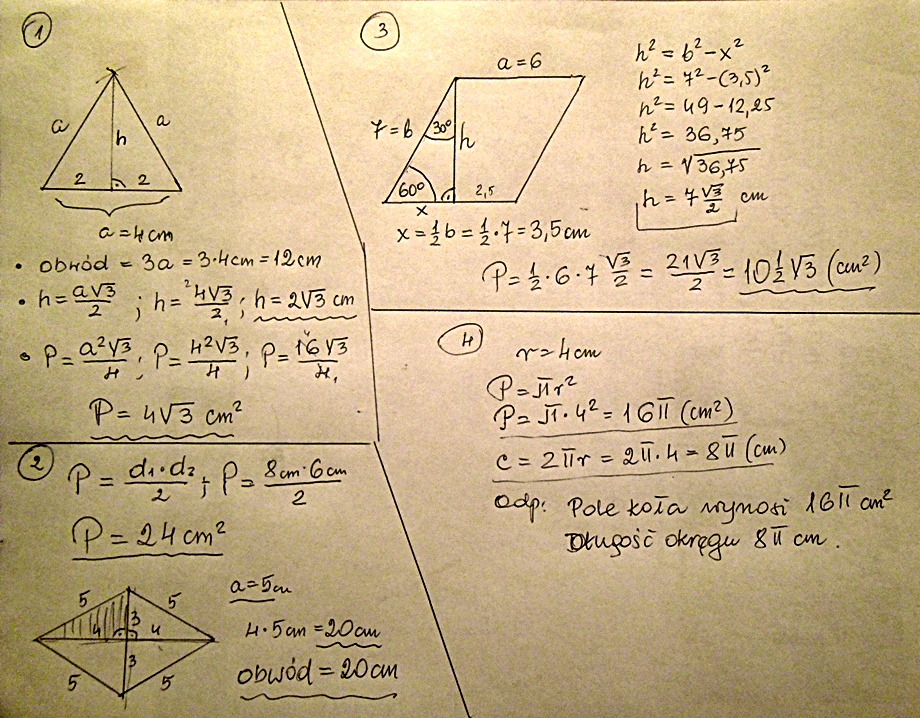 1
a
a
h
2
2
a = 4cm
• obwód = 3a = 3·4cm = 12cm
• h = a√3/2 ; h = ²4√3/2₁ ; h = 2√3 cm
• P = a²√3/4 ; P = 4²√3/4 ; P = 16√3/4₁
P = 4√3 cm²
2
P = d₁·d₂/2 ; P = 8cm·6cm/2
P = 24cm²
5
5
4
3
4
3
5
5
a = 5cm
4·5cm = 20cm
obwód = 20cm
3
a = 6
7 = b
30°
h
60°
2,5
x
x = ½b = ½·7 = 3,5cm
h² = b² - x²
h² = 7² - (3,5)²
h² = 49 - 12,25
h² = 36,75
h = √36,75
h = 7 √3/2 cm
P = ½·6·7 √3/2 = 21√3/2 = 10½√3 (cm²)
4
r = 4cm
P = πr²
P = π·4² = 16π (cm²)
c = 2πr = 2π·4 = 8π (cm)
Odp: Pole koła wynosi 16π cm²
Długość okręgu 8π cm.